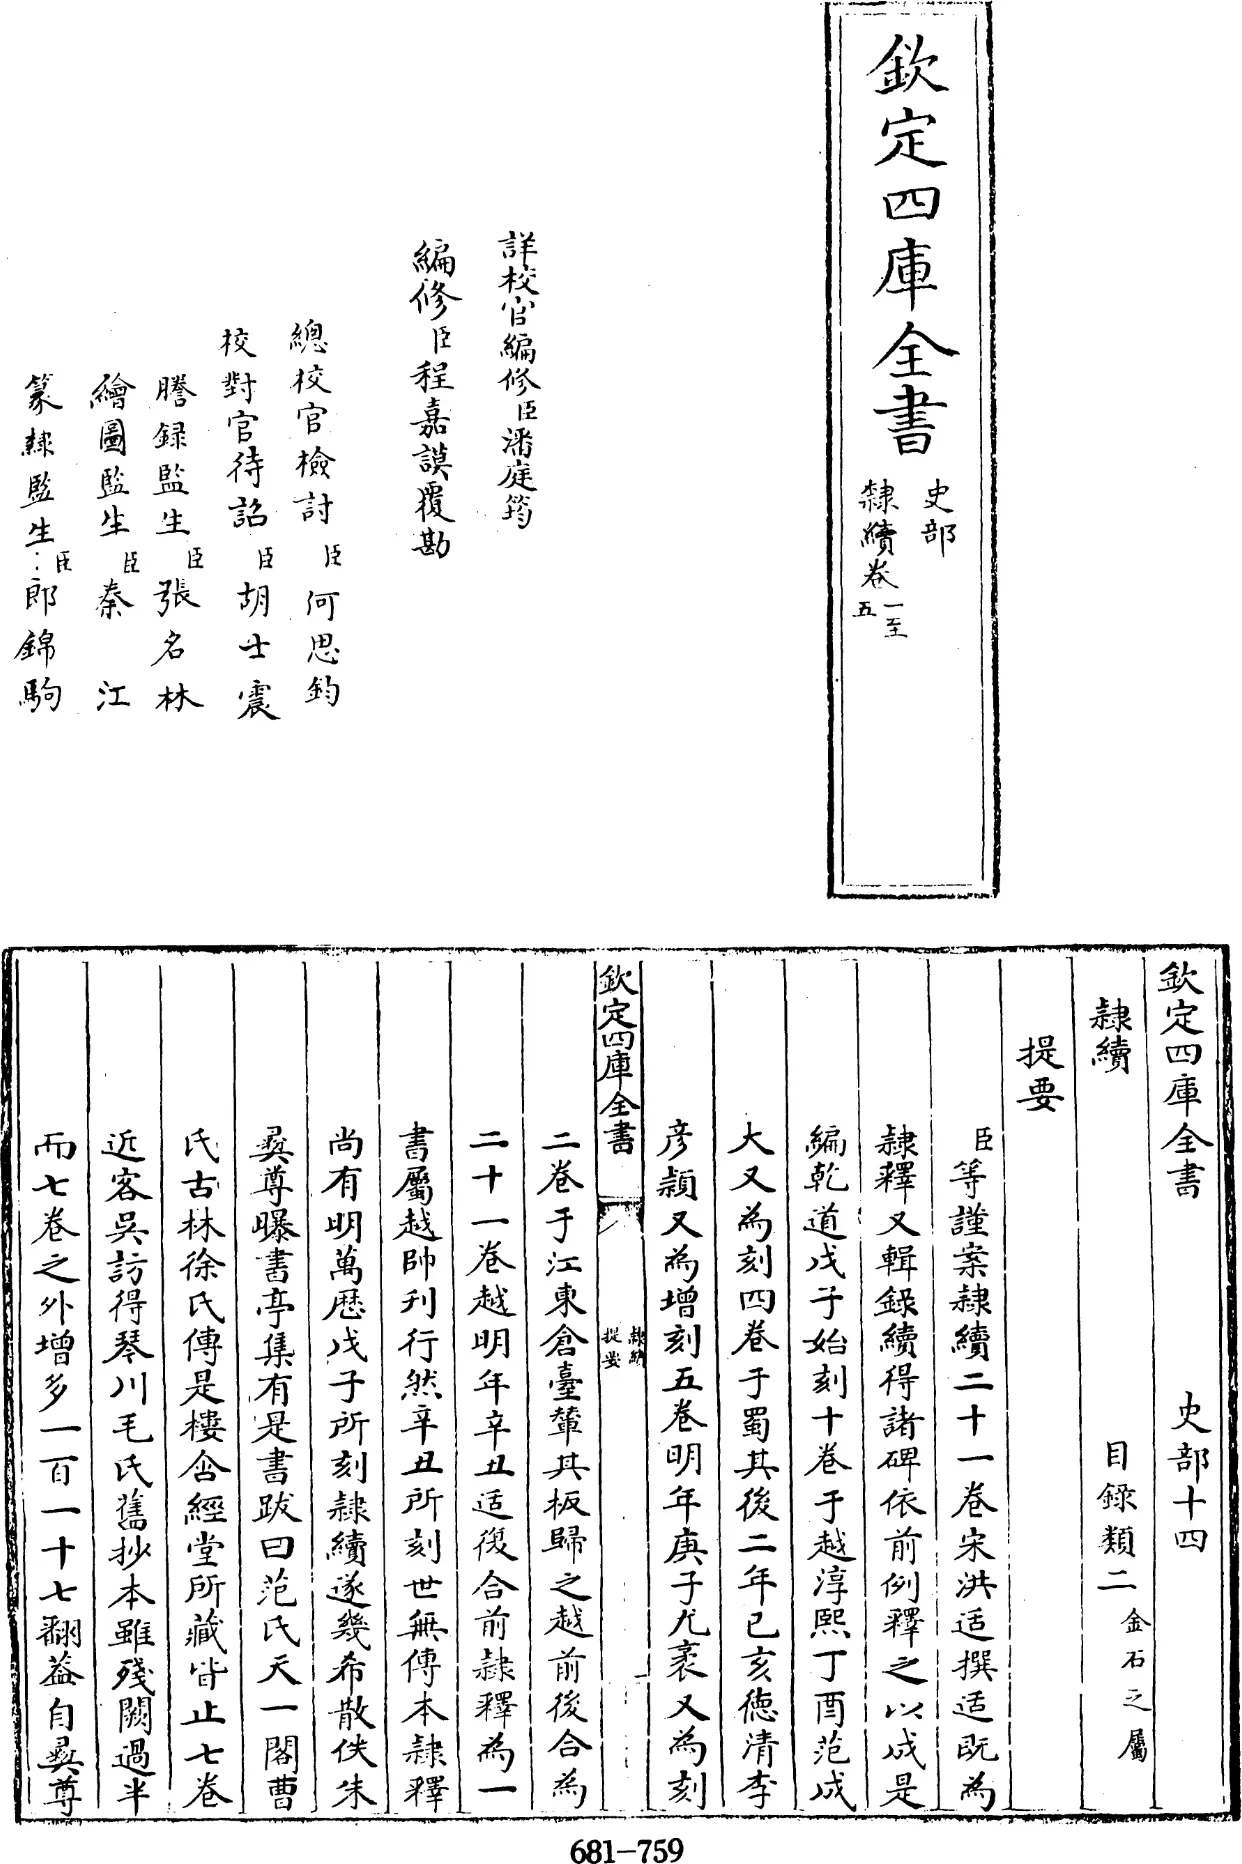 欽定四庫全書
史部
隸續卷一至五
詳校官編修臣潘庭筠
編修臣程嘉謨覆勘
總校官檢討臣何思鈞
校對官待詔臣胡士震
謄録監生臣張名林
繪圖監生臣秦江
篆隸監生臣郎錦駒
欽定四庫全書 史部十四
隸續 目録類二金石之屬
提要
臣等謹案隸續二十一卷宋洪适撰适既為
隸釋又輯錄續得諸碑依前例釋之以成是
編乾道戊子始刻十卷于越淳熙丁酉范成
大又為刻四卷于蜀其後二年己亥德清李
彦穎又為增刻五卷明年庚子尤袤又為刻
欽定四庫全書 隸續提要 一
二卷于江東倉臺輦其板歸之越前後合為
二十一卷越明年辛丑适復合前隸釋為一
書屬越帥刋行然辛丑所刻世無傳本隸釋
尚有明萬厯戊子所刻隸續遂幾希散佚朱
彛尊曝書亭集有是書跋曰范氏天一閣曹
氏古林徐氏傳是樓含經堂所藏皆止七卷
近客吳訪得琴川毛氏舊抄本雖殘闕過半
而七卷之外增多一百一十七翻葢自彛尊
681-759